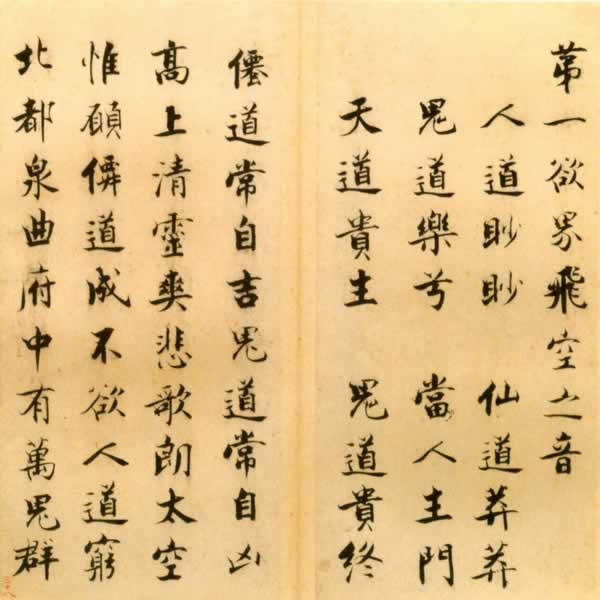 第一欲界飛空之音
人道眇眇　仙道莽莽
鬼道樂兮　當人生門
天道貴生　鬼道貴終
僊道常自吉鬼道常自凶
高上清靈爽悲歌朗太空
惟願僊道成不欲人道窮
北都泉曲府中有萬鬼群